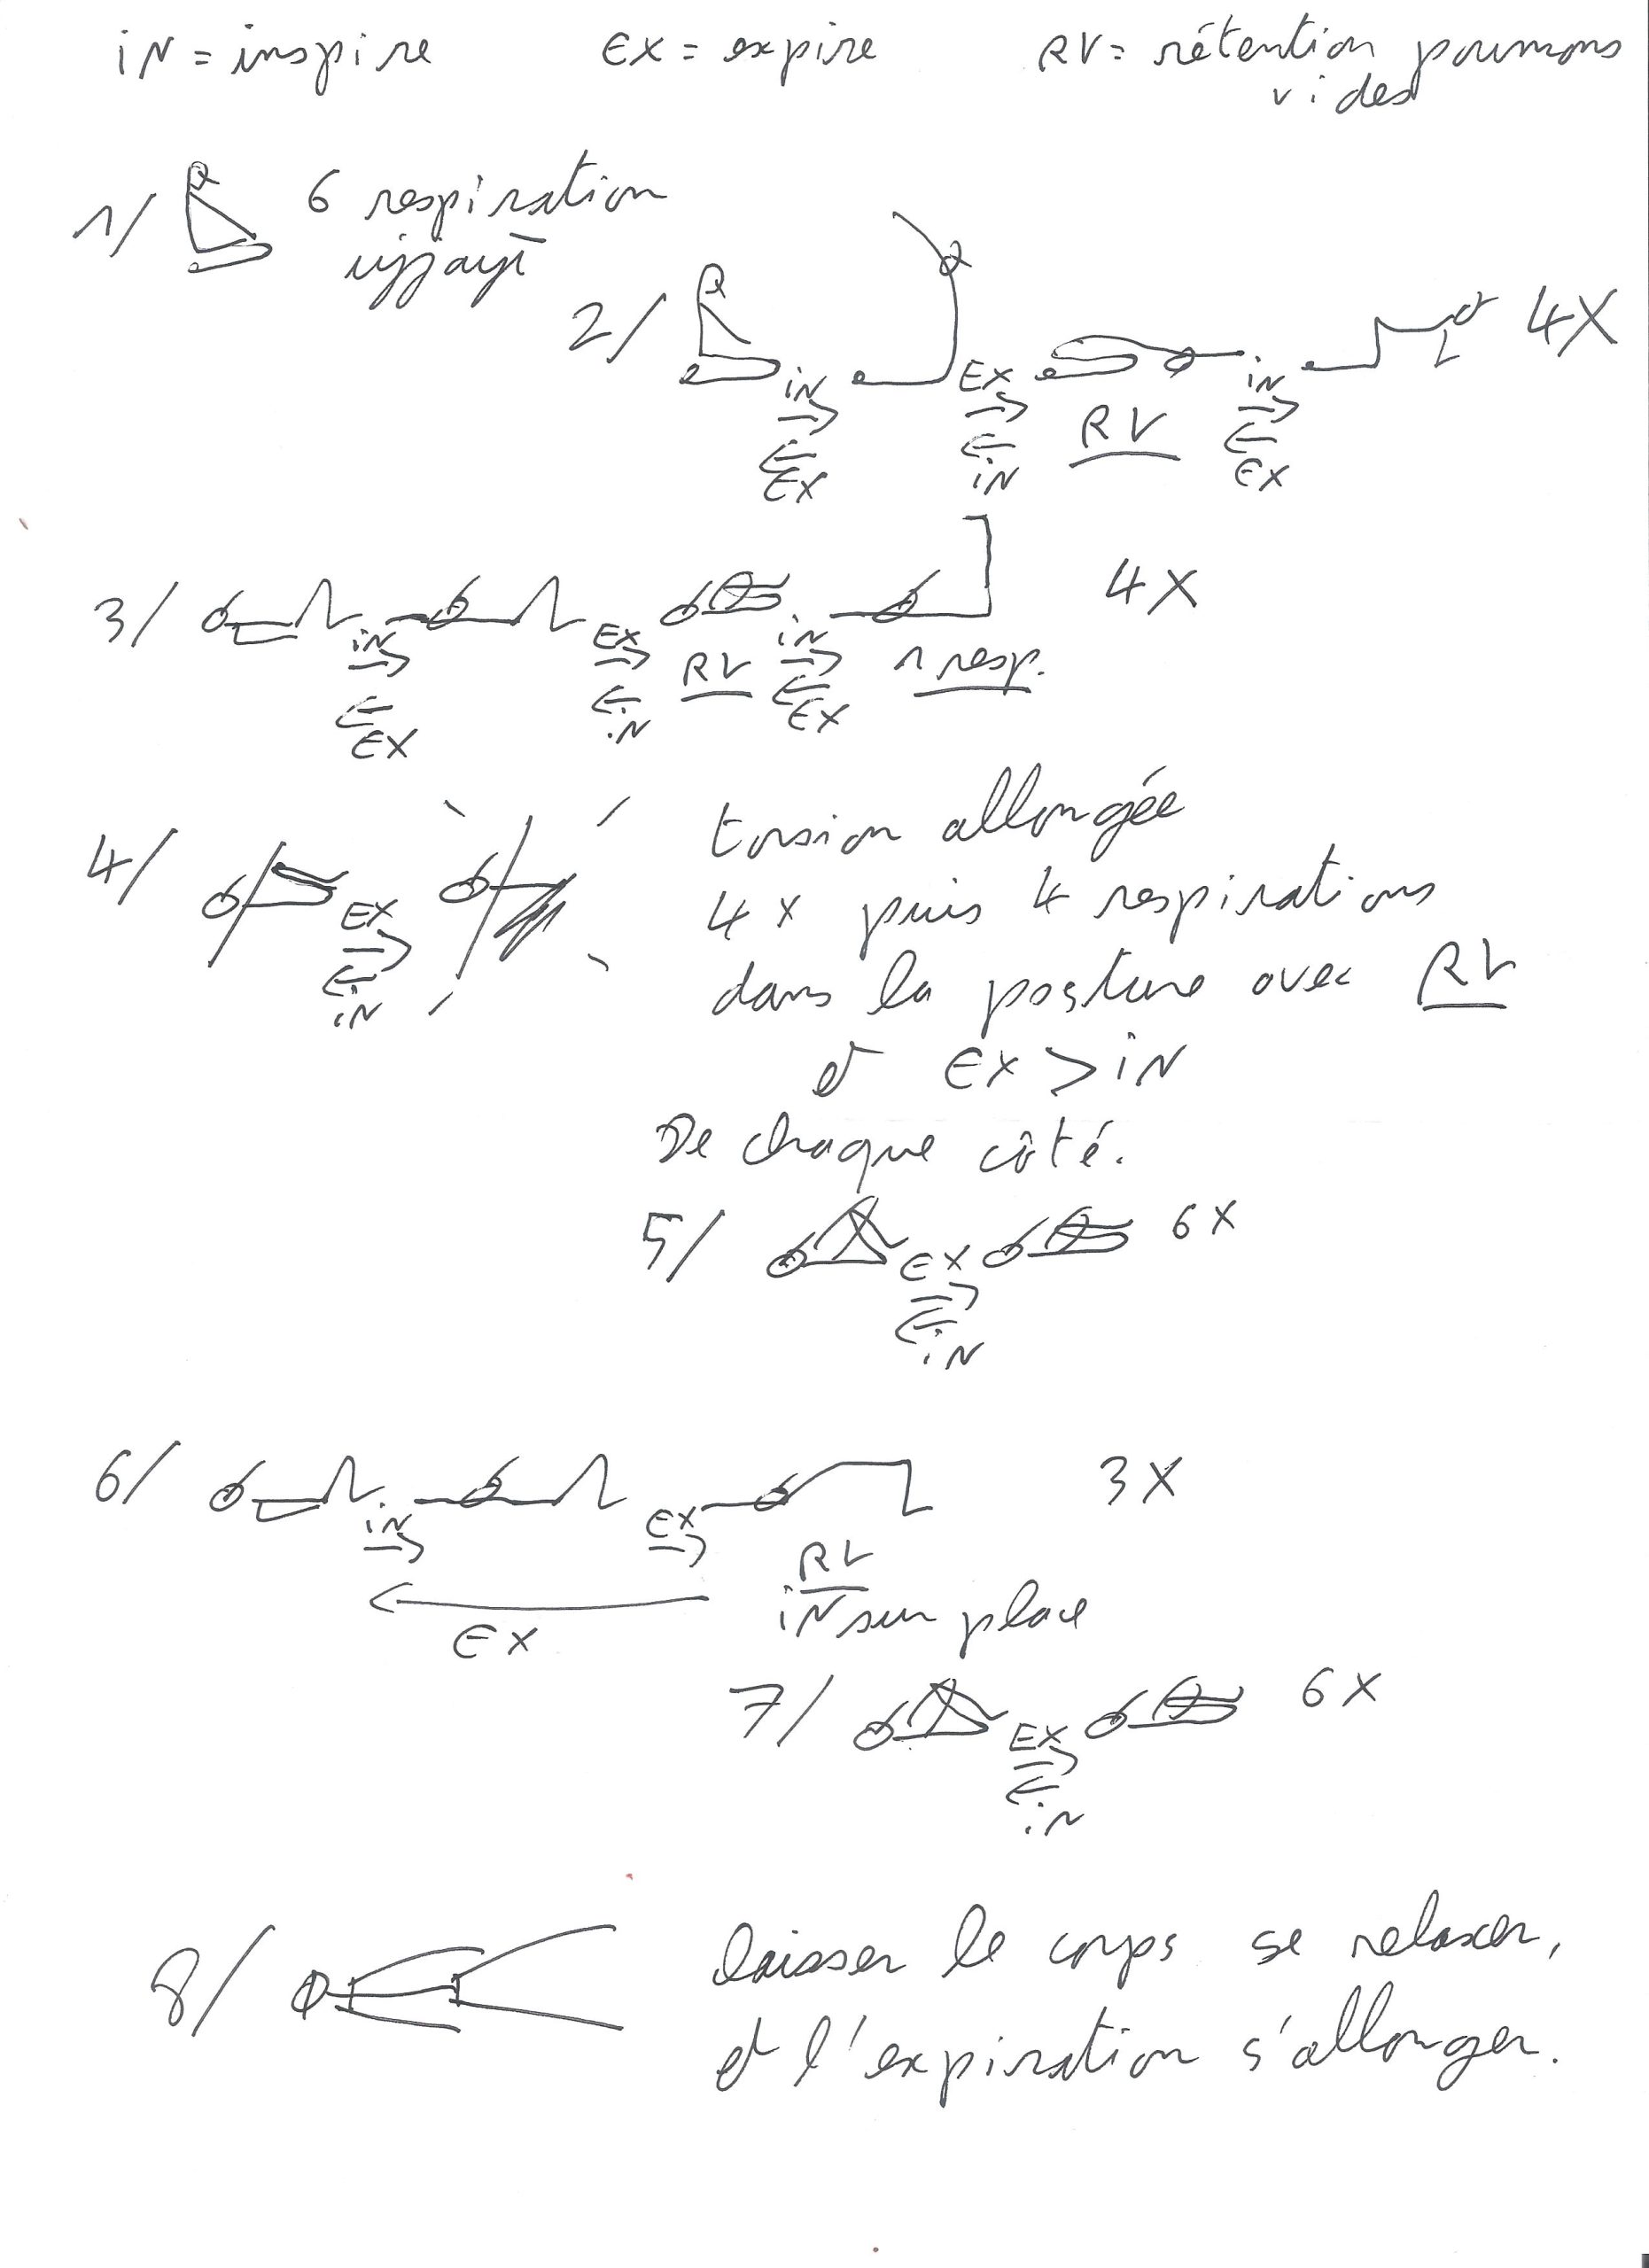 iN = inspire EX = expire RV = rétention poumons
vides
1/ 6 respiration
ujjayī
2/ 4X
iN EX iN
RV
EX iN EX
3/ 4X
iN EX iN
RV 1 resp.
EX iN EX
4/ torsion allongée
EX 4x puis 4 respirations
iN dans la posture avec RV
et EX > iN
De chaque côté.
5/ EX 6X
iN
6/ 3X
iN EX
RV
iN sur place
EX
7/ EX 6X
iN
8/ laisser le corps se relaxer,
et l'expiration s'allonger.